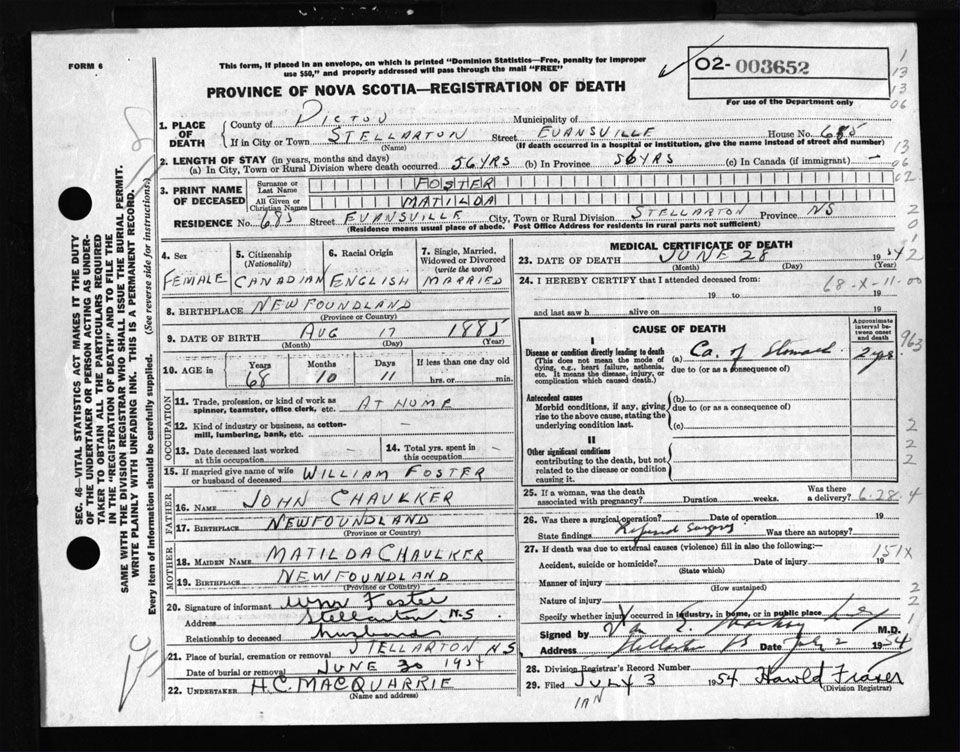 FORM 6
This form, if placed in an envelope, on which is printed "Dominion Statistics—Free, penalty for improper
use $50," and properly addressed will pass through the mail "FREE"
02- 003652
For use of the Department only
PROVINCE OF NOVA SCOTIA—REGISTRATION OF DEATH
1. PLACE OF DEATH
County of PICTOU Municipality of
If in City or Town STELLARTON Street EVANSVILLE House No. 685
(Name) (If death occurred in a hospital or institution, give the name instead of street and number)
2. LENGTH OF STAY (in years, months and days)
(a) In City, Town or Rural Division where death occurred 56 YRS (b) In Province 56 YRS (c) In Canada (if immigrant) —
3. PRINT NAME OF DECEASED
Surname or Last Name FOSTER
All Given or Christian Names MATILDA
RESIDENCE No. 685 Street EVANSVILLE City, Town or Rural Division STELLARTON Province NS
(Residence means usual place of abode. Post Office Address for residents in rural parts not sufficient)
4. Sex
FEMALE
5. Citizenship
(Nationality)
CANADIAN
6. Racial Origin
ENGLISH
7. Single, Married, Widowed or Divorced
(write the word)
MARRIED
8. BIRTHPLACE NEWFOUNDLAND
(Province or Country)
9. DATE OF BIRTH AUG 17 1885
(Month) (Day) (Year)
10. AGE in
Years Months Days If less than one day old
68 10 11 hrs. or min.
OCCUPATION
11. Trade, profession, or kind of work as
spinner, teamster, office clerk, etc. AT HOME
12. Kind of industry or business, as cotton-
mill, lumbering, bank, etc. —
13. Date deceased last worked
at this occupation —
14. Total yrs. spent in
this occupation —
15. If married give name of wife
or husband of deceased WILLIAM FOSTER
FATHER
16. NAME JOHN CHAULKER
17. BIRTHPLACE NEWFOUNDLAND
(Province or Country)
MOTHER
18. MAIDEN NAME MATILDA CHAULKER
19. BIRTHPLACE NEWFOUNDLAND
(Province or Country)
20. Signature of informant Wm Foster
Address Stellarton N.S
Relationship to deceased husband
21. Place of burial, cremation or removal STELLARTON NS
Date of burial or removal JUNE 30 1954
22. UNDERTAKER H.C. MACQUARRIE
(Name and address)
MEDICAL CERTIFICATE OF DEATH
23. DATE OF DEATH JUNE 28 1954
(Month) (Day) (Year)
24. I HEREBY CERTIFY that I attended deceased from:
68-X-11-00
19 to 19
and last saw h alive on 19
CAUSE OF DEATH
Approximate interval between onset and death
I
Disease or condition directly leading to death
(This does not mean the mode of
dying, e.g., heart failure, asthenia,
etc. It means the disease, injury, or
complication which caused death.)
(a) Ca. of Stomach 2 yrs
due to (or as a consequence of)
Antecedent causes
Morbid conditions, if any, giving
rise to the above cause, stating the
underlying condition last.
(b)
due to (or as a consequence of)
(c)
II
Other significant conditions
contributing to the death, but not
related to the disease or condition
causing it.
25. If a woman, was the death
associated with pregnancy? Duration weeks. Was there a delivery? 6.28.4
26. Was there a surgical operation? Date of operation 19
State findings Refused Surgery Was there an autopsy?
27. If death was due to external causes (violence) fill in also the following:— 151X
Accident, suicide or homicide? Date of injury 19
(State which)
Manner of injury
(How sustained)
Nature of injury
Specify whether injury occurred in industry, in home, or in public place
Signed by M.D.
Address Stellarton NS Date July 2 1954
28. Division Registrar's Record Number
29. Filed JULY 3 1954 Harold Fraser
(Division Registrar)
SEC. 46—VITAL STATISTICS ACT MAKES IT THE DUTY
OF THE UNDERTAKER OR PERSON ACTING AS UNDER-
TAKER TO OBTAIN ALL THE PARTICULARS REQUIRED
IN THE "REGISTRATION OF DEATH" AND TO FILE THE
SAME WITH THE DIVISION REGISTRAR WHO SHALL ISSUE THE BURIAL PERMIT.
WRITE PLAINLY WITH UNFADING INK. THIS IS A PERMANENT RECORD.
Every item of information should be carefully supplied. (See reverse side for instructions.)
1
13
13
06
13
06
02
2
0
1
42
963
2
2
2
2
2
1